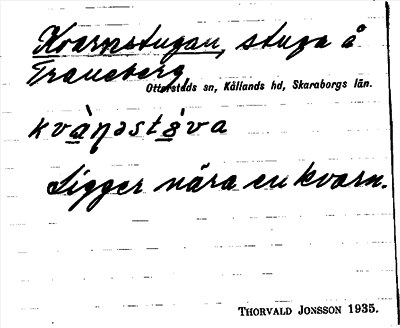 Kvarnstugan, stuga å
Traneberg,
Otterstads sn, Kållands hd, Skaraborgs län.
kvàꞃəstǝ̀va
Ligger nära en kvarn.
THORVALD JONSSON 1935.